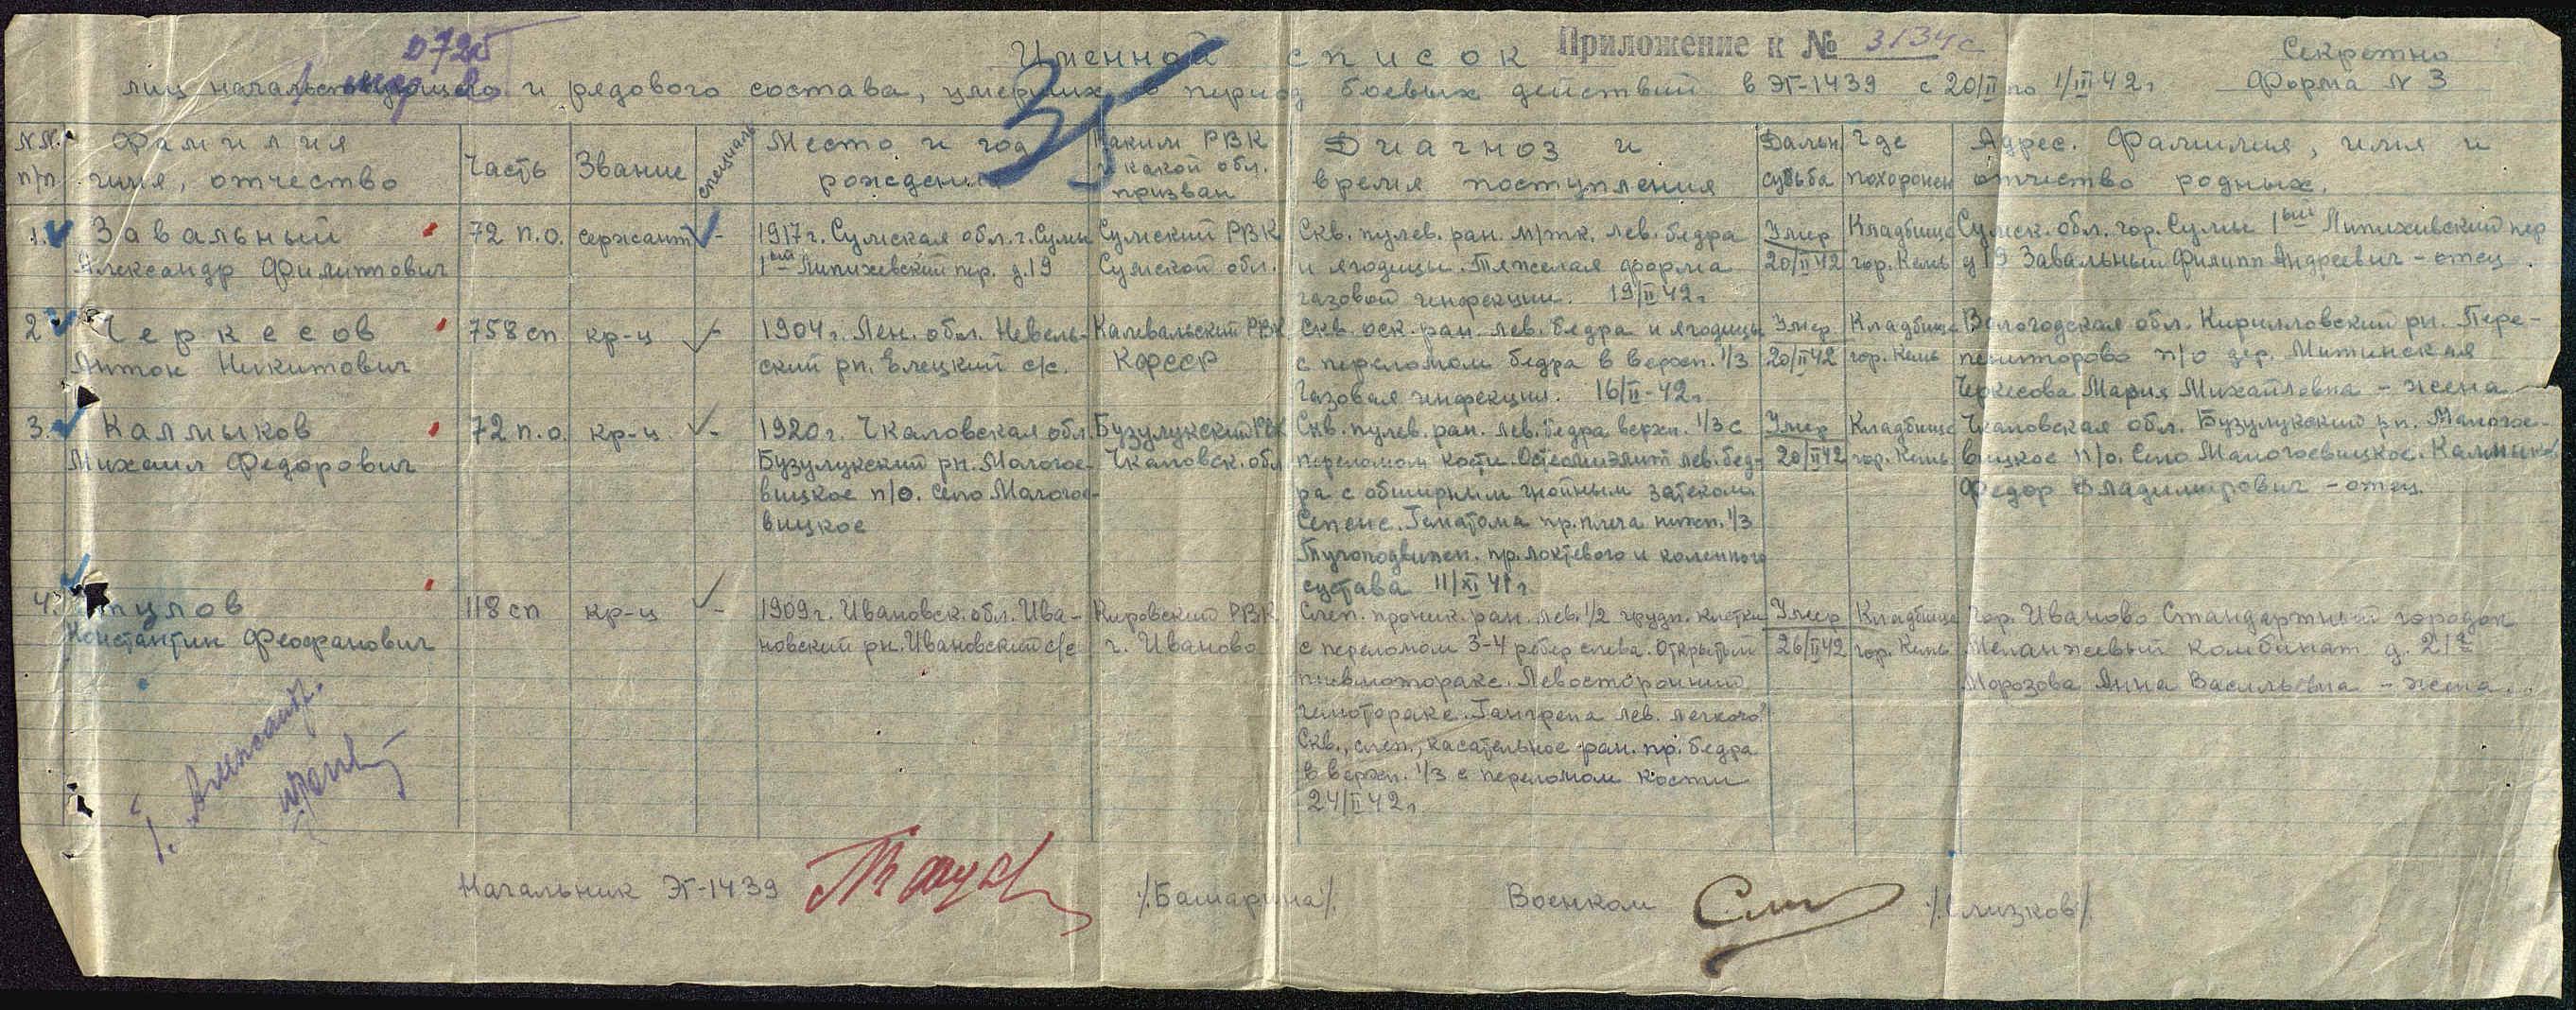 0725
Именной список
Приложение к № 3134с
Секретно
лиц начальствующего и рядового состава, умерших в период боевых действий в ЭГ-1439 с 20/II по 1/III 42 г.
Форма N 3
35
N.N. п/п
Фамилия имя, отчество
Часть
Звание
специальн
Место и год рождения
Каким РВК и какой обл. призван
Диагноз и время поступления
Дальн. судьба
Где похоронен
Адрес. Фамилия, имя и отчество родных.
1.
Завальный
Александр Филиппович
72 п.о.
сержант
-
1917 г. Сумская обл. г. Сумы
1ый Липихевский пер. д. 19
Сумский РВК
Сумской обл.
Скв. пулев. ран. м/тк. лев. бедра
и ягодицы. Тяжелая форма
газовой инфекции. 19/II 42 г.
Умер
20/II 42
Кладбище
гор. Кемь
Сумск. обл. гор. Сумы 1ый Липихивский пер
д 19 Завальный Филипп Андреевич - отец.
2
Черкесов
Антон Никитович
758 сп
кр-ц
-
1904 г. Лен. обл. Невель-
ский рн. Елецкий с/с.
Калевальский РВК
КФССР
Скв. оск. ран. лев. бедра и ягодицы
с переломом бедра в верхн. 1/3
Газовая инфекция. 16/II-42 г.
Умер
20/II 42
Кладбище
гор. Кемь
Вологодская обл. Кирилловский рн. Пере-
п/о дер. Митинская
Черкесова Мария Михайловна - жена
3.
Калмыков
Михаил Федорович
72 п.о.
кр-ц.
-
1920 г. Чкаловская обл.
Бузулукский рн. Малогое-
вицкое п/о. Село Малогое-
вицкое
Бузулукский РВК
Чкаловск. обл
Скв. пулев. ран. лев. бедра верхн. 1/3 с
переломом кости. Остеомиэлит лев. бед-
ра с обширным гнойным затеком.
Сепсис. Гематома пр. плеча нижн. 1/3
Тугоподвижн. пр. локтевого и коленного
сустава 11/XI 41 г.
Умер
20/II 42
Кладбище
гор. Кемь
Чкаловская обл. Бузулукский рн. Малогое-
вицкое п/о. Село Малогоевицкое. Калмыков
Федор Владимирович - отец.
4.
Константин Феофанович
118 сп
кр-ц
-
1909 г. Ивановск. обл. Ива-
новский рн. Ивановский с/с
Кировский РВК
г. Иваново
Слеп. проник. ран. лев. 1/2 грудн. клетки
с переломом 3-4 ребер слева. Открытый
пневмоторакс. Левосторонний
гемоторакс. Гангрена лев. легкого.
Скв., слеп., касательное ран. пр. бедра
в верхн. 1/3 с переломом кости
24/II 42 г.
Умер
26/II 42
Кладбище
гор. Кемь
Гор. Иваново Стандартный городок
Меланжевый комбинат д. 21а
Морозова Анна Васильевна - жена.
Начальник ЭГ-1439
/Башарина/.
Военком
/Слизков/.